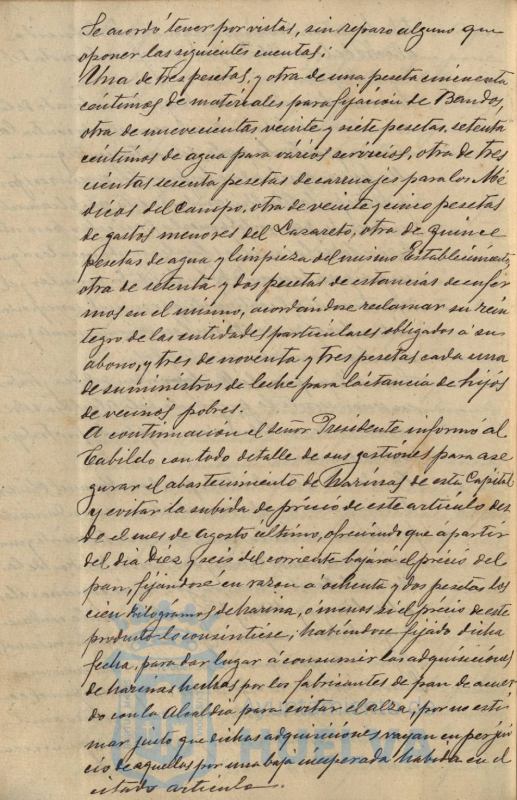 Se acordó tener por vistas, sin reparo alguno que
oponer las siguientes cuentas:
Una de tres pesetas, y otra de una peseta cincuenta
céntimos de materiales para fijación de Bandos,
otra de nuevecientas veinte y siete pesetas, setenta
céntimos de agua para varios servicios, otra de tres
cientas sesenta pesetas de carruajes para los Mé
dicos del campo, otra de veinte y cinco pesetas
de gastos menores del Lazareto, otra de quince
pesetas de agua y limpieza del mismo Establecimiento,
otra de setenta y dos pesetas de estancias de enfer
mos en el mismo, acordándose reclamar su rein
tegro de las entidades particulares obligados á su
abono, y tres de noventa y tres pesetas cada una
de suministros de leche para lactancia de hijos
de vecinos pobres.
A continuación el señor Presidente informó al
Cabildo con todo detalle de sus gestiones para ase
gurar el abastecimiento de harinas de esta Capital
y evitar la subida de précio de este artículo des
de el mes de Agosto último, ofreciendo que á partir
del dia Diez y seis del corriente bajará el précio del
pan, fijándose en razon á ochenta y dos pesetas los
cien kilogramos de harina, ó menos si el precio de este
producto lo consintiese; habiéndose fijado dicha
fecha, para dar lugar á consumir las adquisiciones
de harinas hechas por los fabricantes de pan de acuer
do con la Alcaldía para evitar el alza, por no esti
mar justo que dichas adquisiciones vayan en perjui
cio de aquellos por una baja inesperada habida en el
citado artículo.
HUELVA